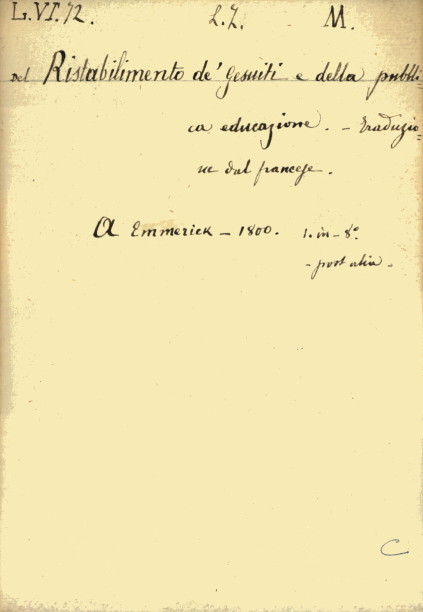 L.VI.72. L.Z. M.
Del Ristabilimento de' Gesuiti e della pubbli-
ca educazione. - Traduzio-
ne dal francese.
A Emmerick - 1800. 1. in - 8°
- post alia -
C